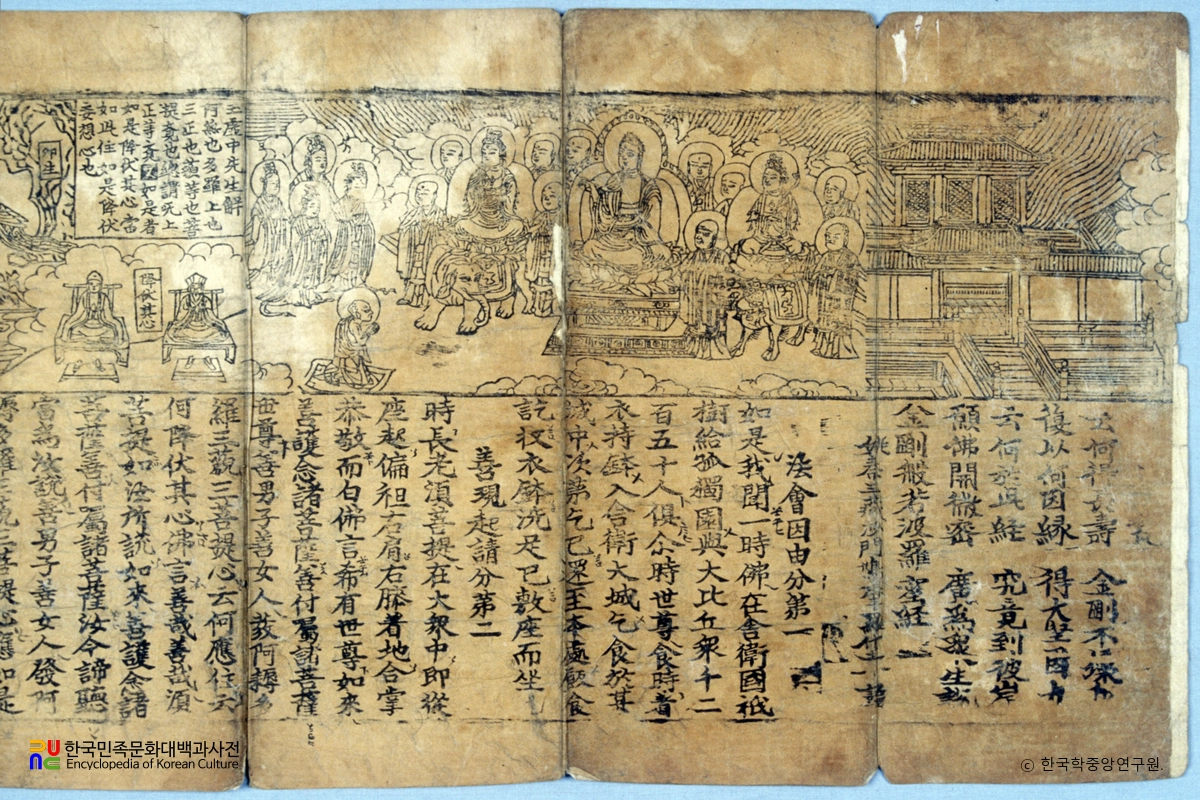 云何得長壽 金剛不壞身
復以何因緣 得大堅固力
云何於此經 究竟到彼岸
願佛開微密 廣爲衆生說
金剛般若波羅蜜經
姚秦三藏沙門鳩摩羅什 譯
法會因由分第一
如是我聞一時佛在舍衛國祇
樹給孤獨園與大比丘衆千二
百五十人俱尒時世尊食時着
衣持鉢入舍衛大城乞食於其
城中次第乞已還至本處飯食
訖收衣鉢洗足已敷座而坐
善現起請分第二
時長老湏菩提在大衆中即從
座起偏袒右肩右膝着地合掌
恭敬而白佛言希有世尊如來
善護念諸菩薩善付囑諸菩薩
世尊善男子善女人發阿耨多
羅三藐三菩提心云何應住云
何降伏其心佛言善哉善哉湏
菩提如汝所說如來善護念諸
菩薩善付囑諸菩薩汝今諦聽
當爲汝說善男子善女人發阿
耨多羅三藐三菩提心應如是
虛中先生解
阿無也多羅上也
三正也藐等也菩
提覺也此謂无上
正等正覺如是者
如是降伏其心當
如此住如是降伏
妄想心也
降伏其心
即生
한국민족문화대백과사전
Encyclopedia of Korean Culture
ⓒ 한국학중앙연구원.